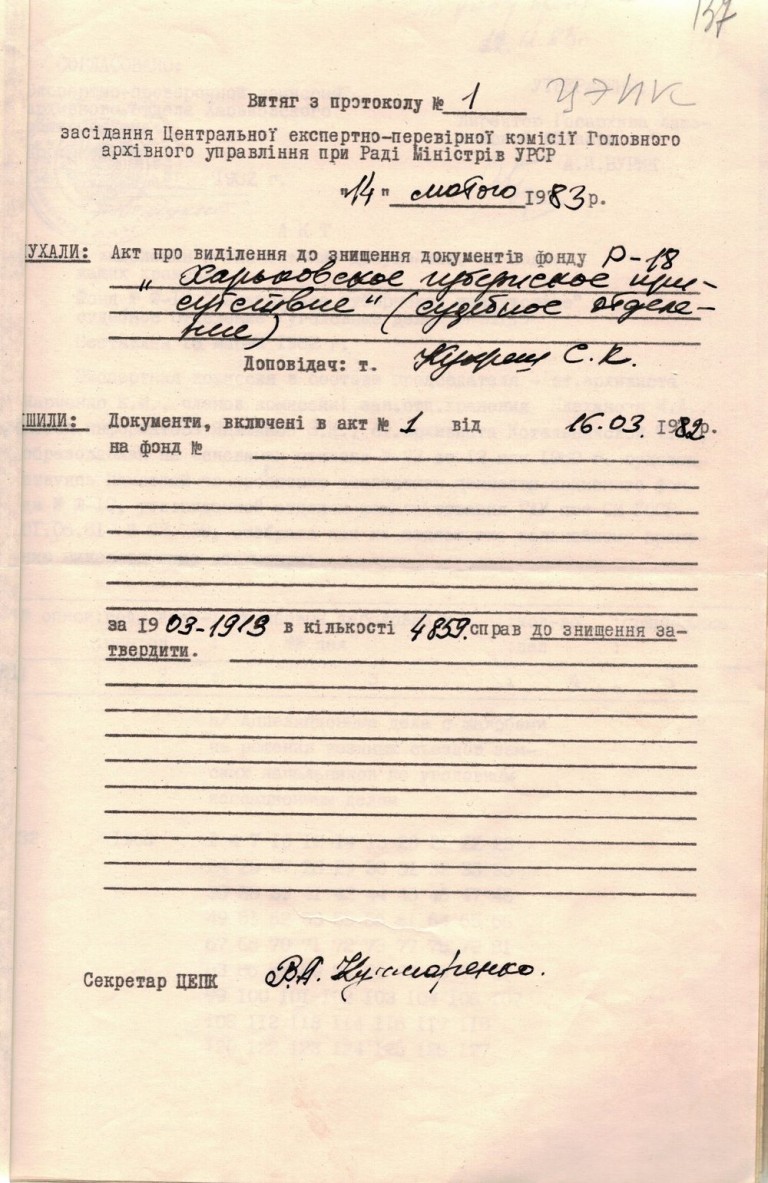 137
Витяг з протоколу № 1 ЦЭПК
засідання Центральної експертно-перевірної комісії Головного
архівного управління при Раді Міністрів УРСР
"14" лютого 1983 р.
УХАЛИ: Акт про виділення до знищення документів фонду Р-18
"Харьковское губернское при-
сутствие" (судебное отделе-
ние)
Доповідач: т. С.К.
ШИЛИ: Документи, включені в акт № 1 від 16.03. 1982 р.
на фонд №
за 1903-1919 в кількості 4859 справ до знищення за-
твердити.
Секретар ЦЕПК В.А. Кушнаренко.